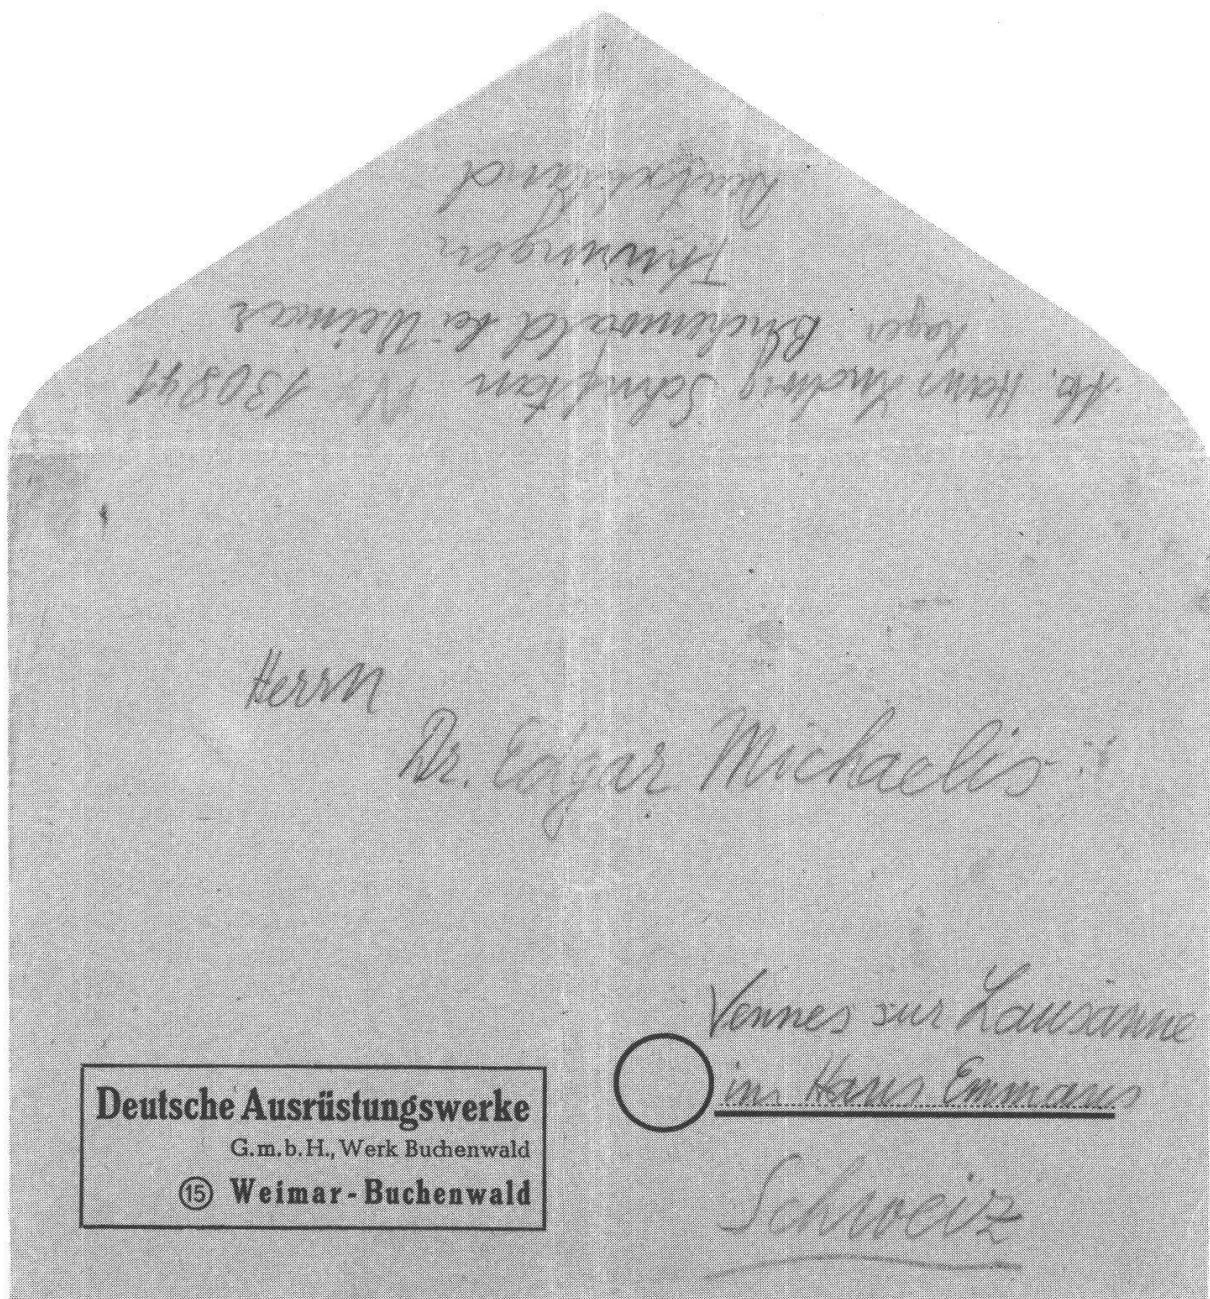 Ab. Hans Ludwig Nr 130841
Lager Buchenwald bei Weimar
Thüringen
Deutschland
Herrn
Dr. Edgar Michaelis
Vennes sur Lausanne
im Haus Emmaus
Schweiz
Deutsche Ausrüstungswerke
G.m.b.H., Werk Buchenwald
15 Weimar-Buchenwald